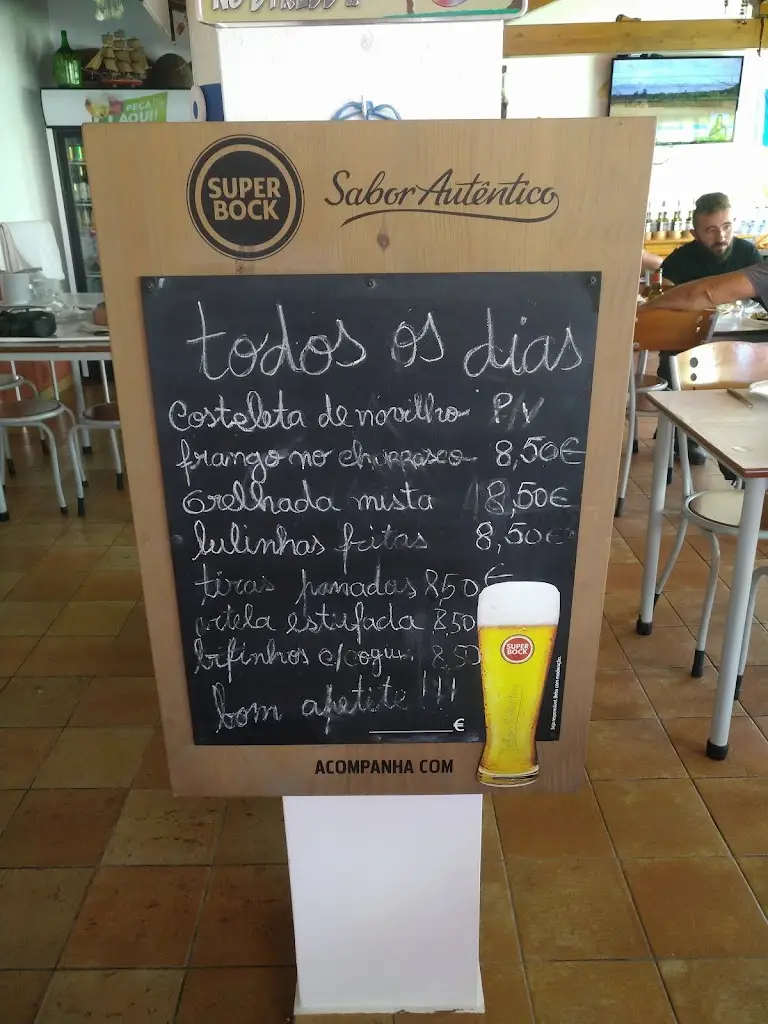 NO STRESS
PEÇA
AQUI!
SUPER
BOCK
Sabor Autêntico
todos os dias
costeleta de novilho P/V
frango no churrasco 8,50€
Grelhada mista 8,50€
lulinhas fritas 8,50€
tiras panadas 8,50€
vitela estufada 8,50
bifinhos c/cogu. 8,50
bom apetite !!!
€
SUPER
BOCK
ACOMPANHA COM